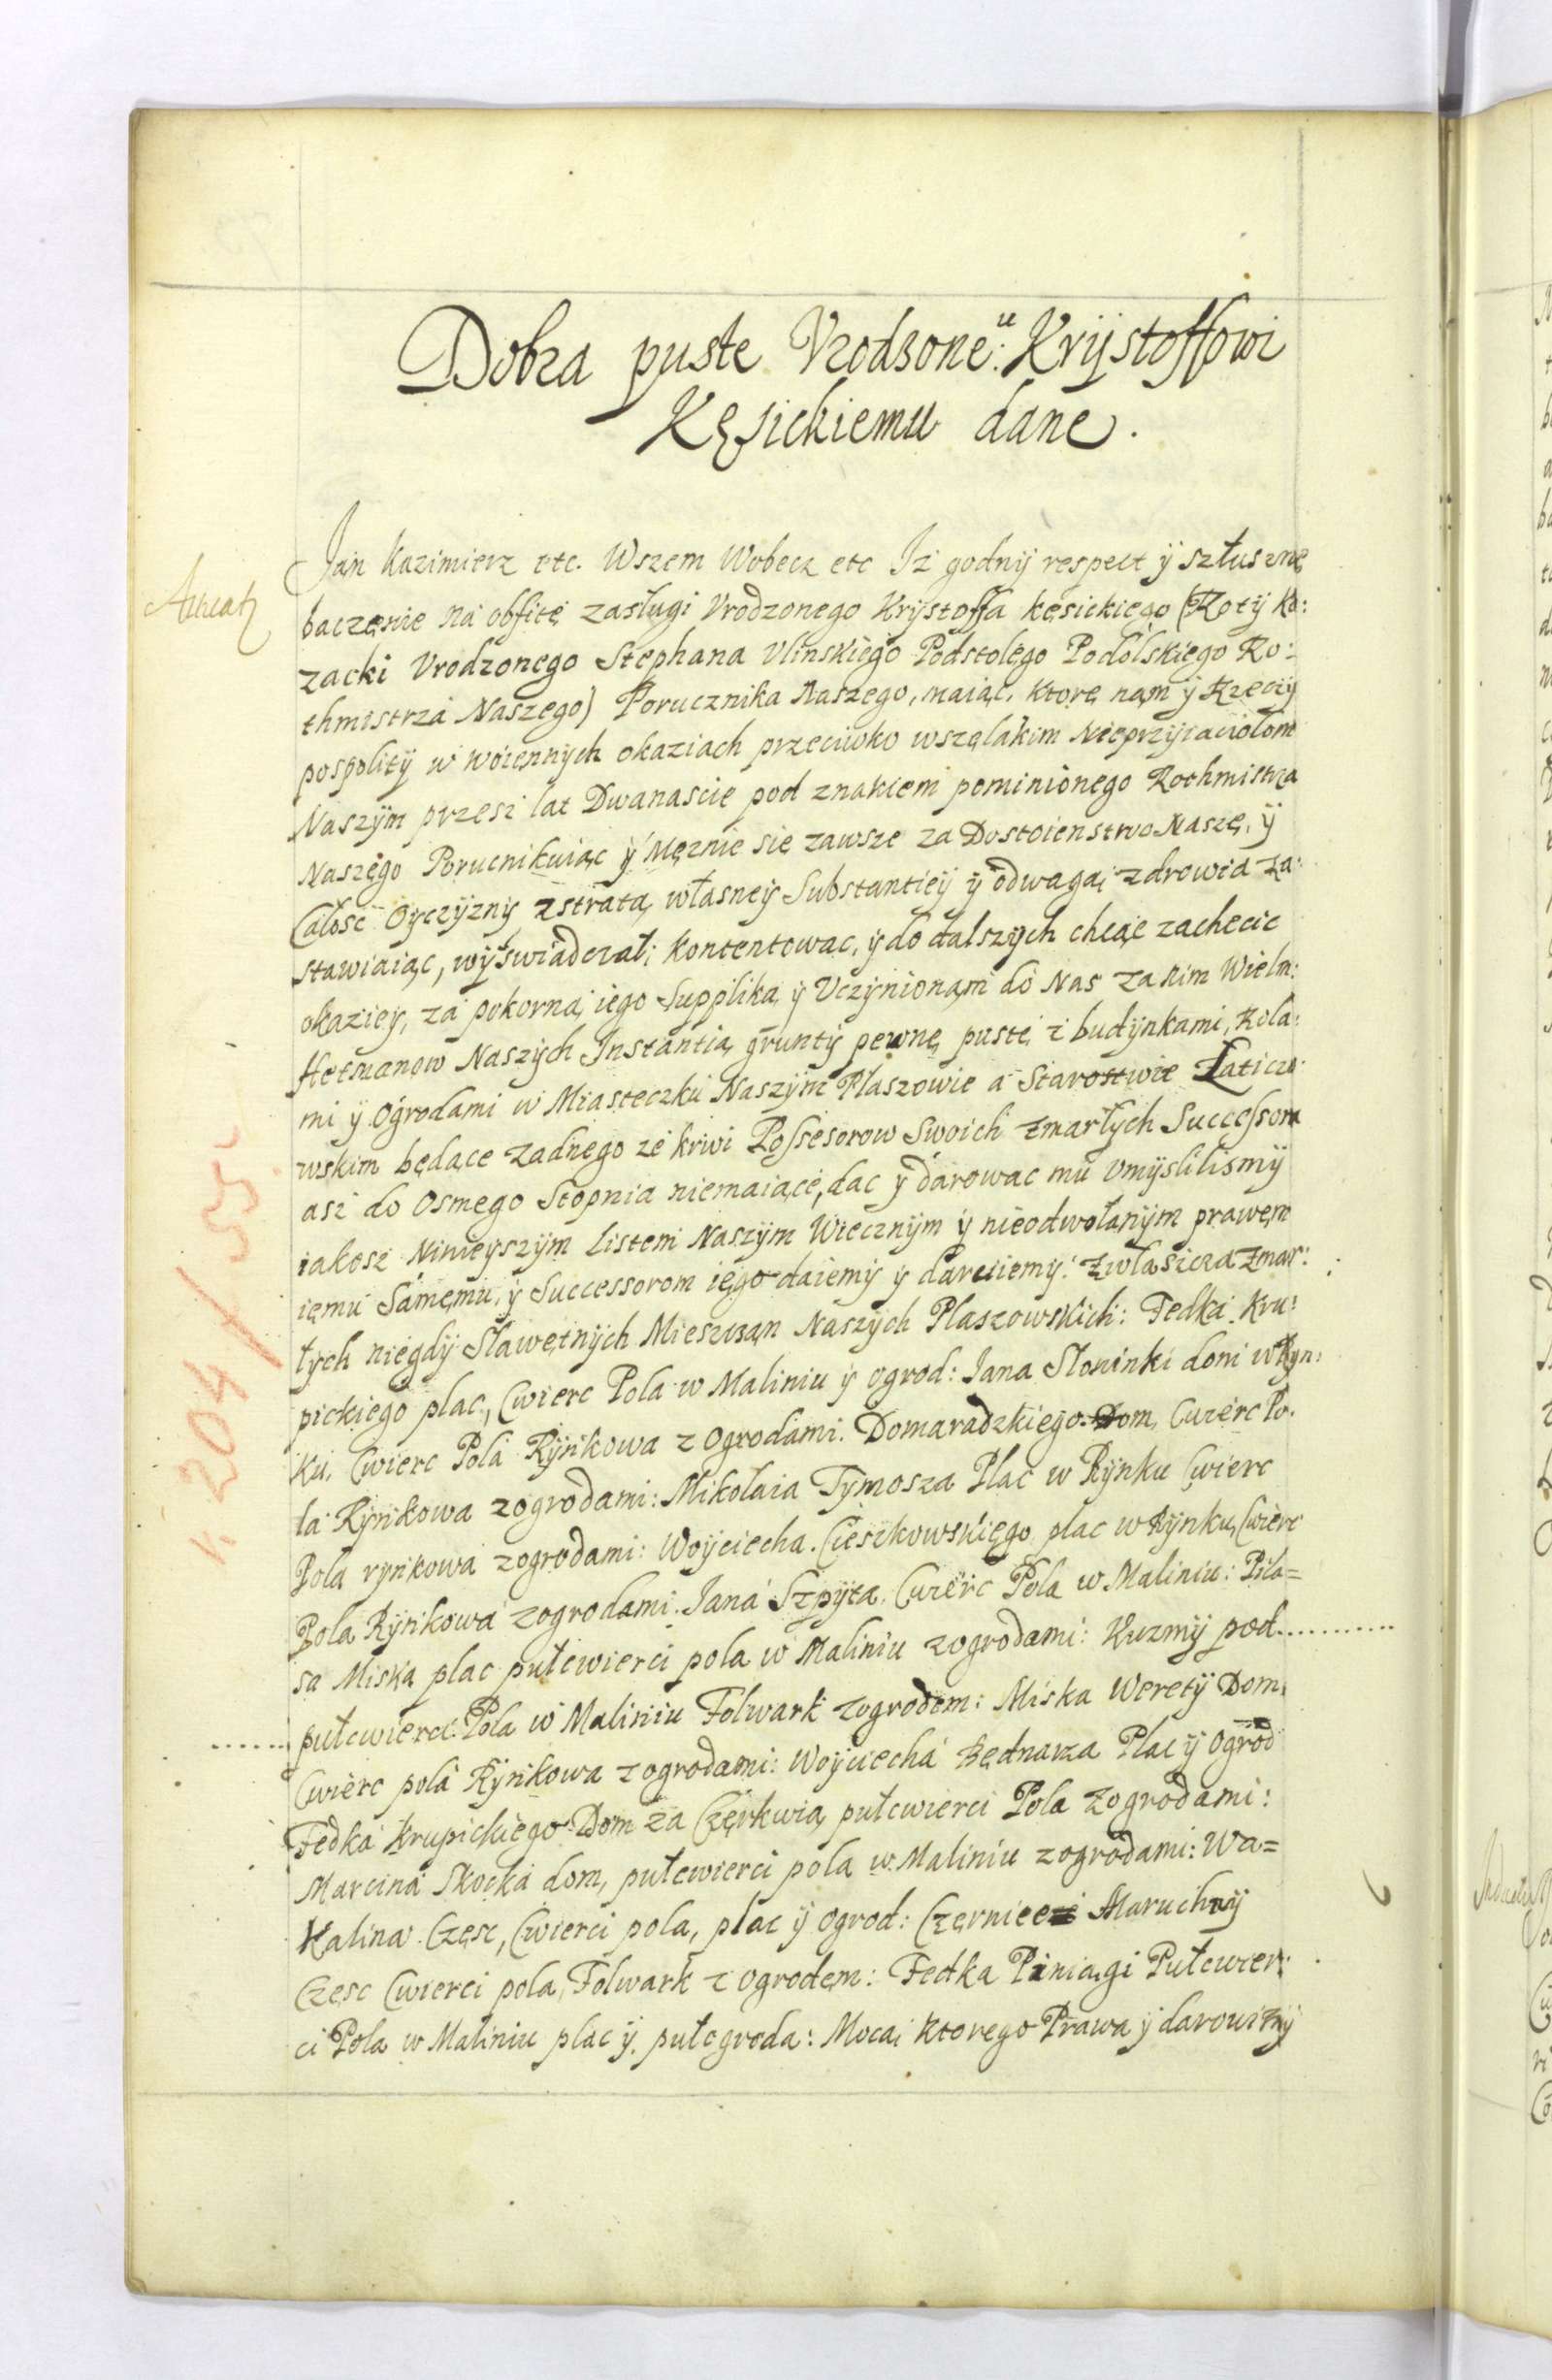 Dobra puste Vrodzone:u Krijstoffowi
Kęsickiemu dane.
Jan Kazimierz etc. Wszem Wobecz etc Iż godnÿ respect ÿ szłuszne
baczenie na obfite zasługi Vrodzonego Krÿstoffa Kęsickiego (Rotÿ Ko:
zacki Vrodzonego Stephana Vlinskiego Podstolego Podolskiego Ro:
thmistrza Naszego) Porucznika Naszego, maiąc, ktore nam ÿ Rzeczÿ
pospolitÿ w woiennÿch okaziach przeciwko wszelakim Nieprzÿiaciołom
Naszÿm przesz lat Dwanascie pod znakiem pominionego Rothmistrza
Naszego Porucnikuiąc ÿ Męznie sie zawsze za Dostoienstwo Nasze, ÿ
Całosc Oÿczÿznÿ z stratą własneÿ Substantieÿ ÿ odwagą zdrowia za:
stawiaiąc, wÿswiadczał; kontentowac, ÿ do dalszÿch chcąc zachecic
okazieÿ, za pokorną iego Suppliką ÿ Vczÿnionąm do Nas za nim Wielm:
Hetmanow Naszÿch Instantią gruntÿ pewne puste z budÿnkami, Rola:
mi ÿ Ogrodami w Miasteczku Naszÿm Płaszowie a Starostwie Laticzo:
wskim będące zadnego ze krwi Possesorow Swoich zmarłÿch Successora
asz do Osmego Stopnia niemaiące, dac ÿ darowac mu vmÿslilismÿ
iakosz Ninieÿszÿm Listem Naszÿm Wiecznÿm ÿ nieodwołanÿm prawem
iemu Samemu, ÿ Successorom iego daiemÿ ÿ daruiemÿ: zwłaszcza zmar:
łÿch niegdÿ Sławetnÿch Mieszczan Naszÿch Plaszowskich: Fedka Kru:
pickiego plac, Cwierc Pola w Maliniu ÿ ogrod: Jana Słoninki dom w Rÿn:
ku, Cwierc Pola Rÿnkowa z Ogrodami. Domaradzkiego Dom, Cwierc Po:
la Rÿnkowa zogrodami: Mikołaia Tÿmosza Plac w Rÿnku Cwierc
Pola rÿnkowa zogrodami: Woÿciecha Cieszkowskiego plac w Rÿnku, Cwierc
Pola Rÿnkowa zogrodami. Jana Szpÿta Cwierc Pola w Maliniu: Pila=
sa Miska plac pułcwierci pola w Maliniu zogrodami: Kuzmÿ pod...........
...... pułcwierci Pola w Maliniu Folwark zogrodem: Miska Weretÿ Dom,
Cwierc pola Rÿnkowa zogrodami: Woÿciecha Bednarza Plac ÿ Ogrod
Fedka Krupickiego Dom za Czerkwią pułcwierci Pola zogrodami:
Marcina Skocka dom, pułcwierci pola w Maliniu zogrodami: Wa=
Kalina Częsc, Cwierci pola, plac ÿ ogrod: Maruchnÿ
Częsc Cwierci pola, Folwark z ogrodem: Fedka Piniągi Pułcwier:
ci Pola w Maliniu plac ÿ pułogroda: Mocą ktorego Prawa ÿ darowiznÿ